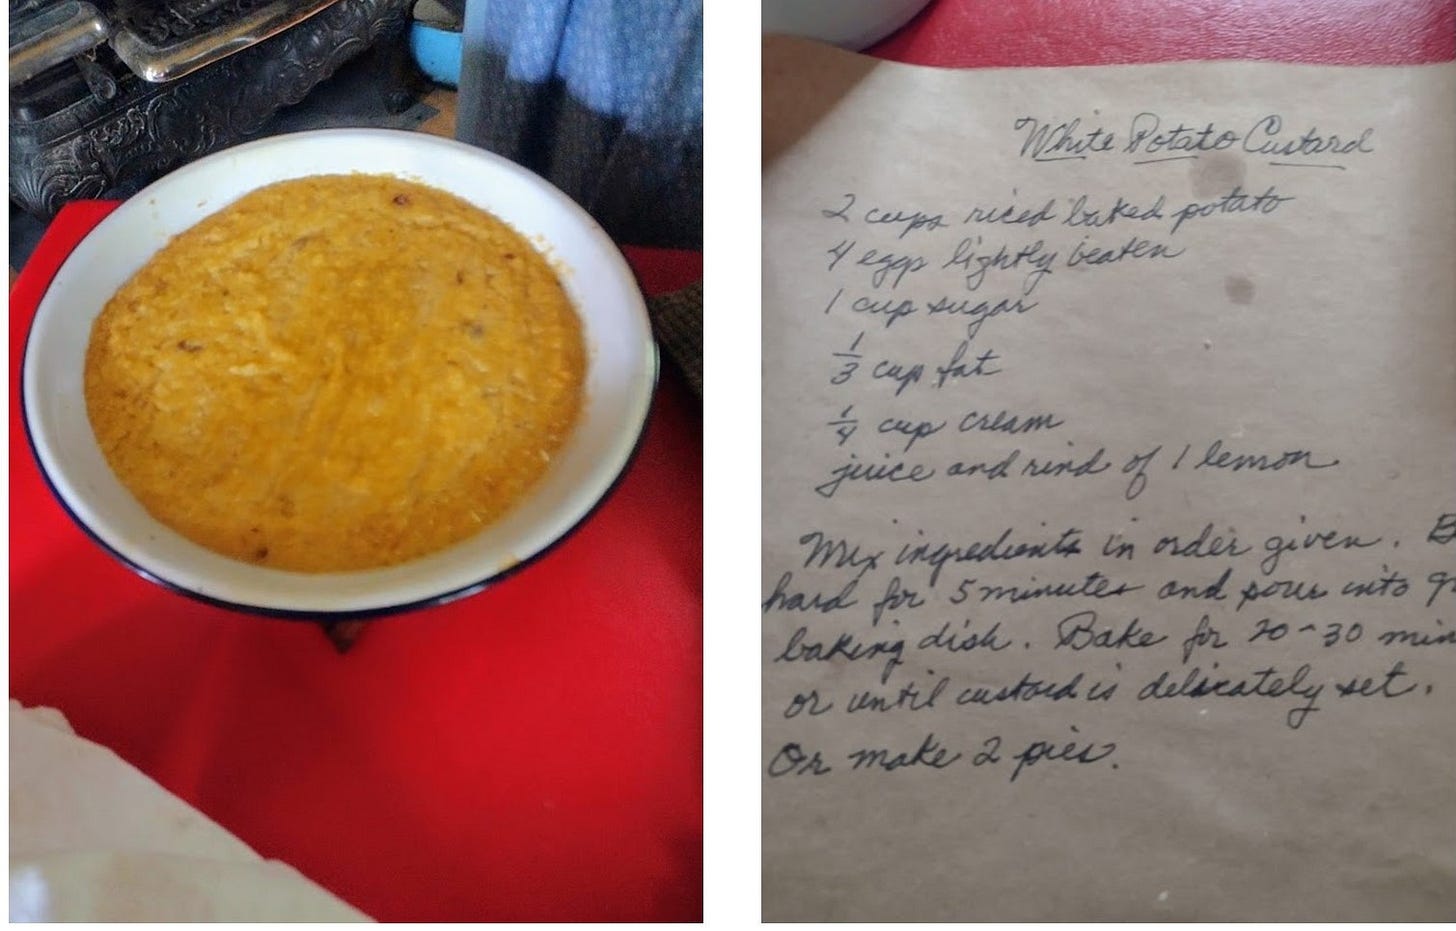 White Potato Custard
2 cups riced baked potato
4 eggs lightly beaten
1 cup sugar
1/3 cup fat
1/4 cup cream
juice and rind of 1 lemon
Mix ingredients in order given.
hard for 5 minutes and pour into
baking dish. Bake for 20-30 min
or until custard is delicately set.
Or make 2 pies.